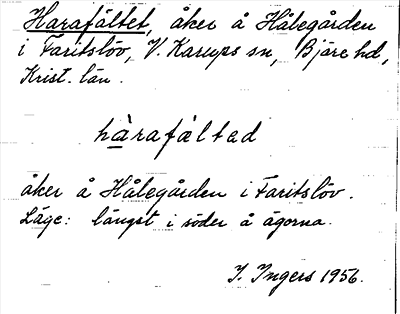 Harafältet, åker å Hålegården
i Faritslöv, V. Karups sn, Bjäre hd,
Krist. län.
hàrafáltad
åker å Hålegården i Faritslöv.
Läge: längst i söder å ägorna.
I. Ingers 1956.